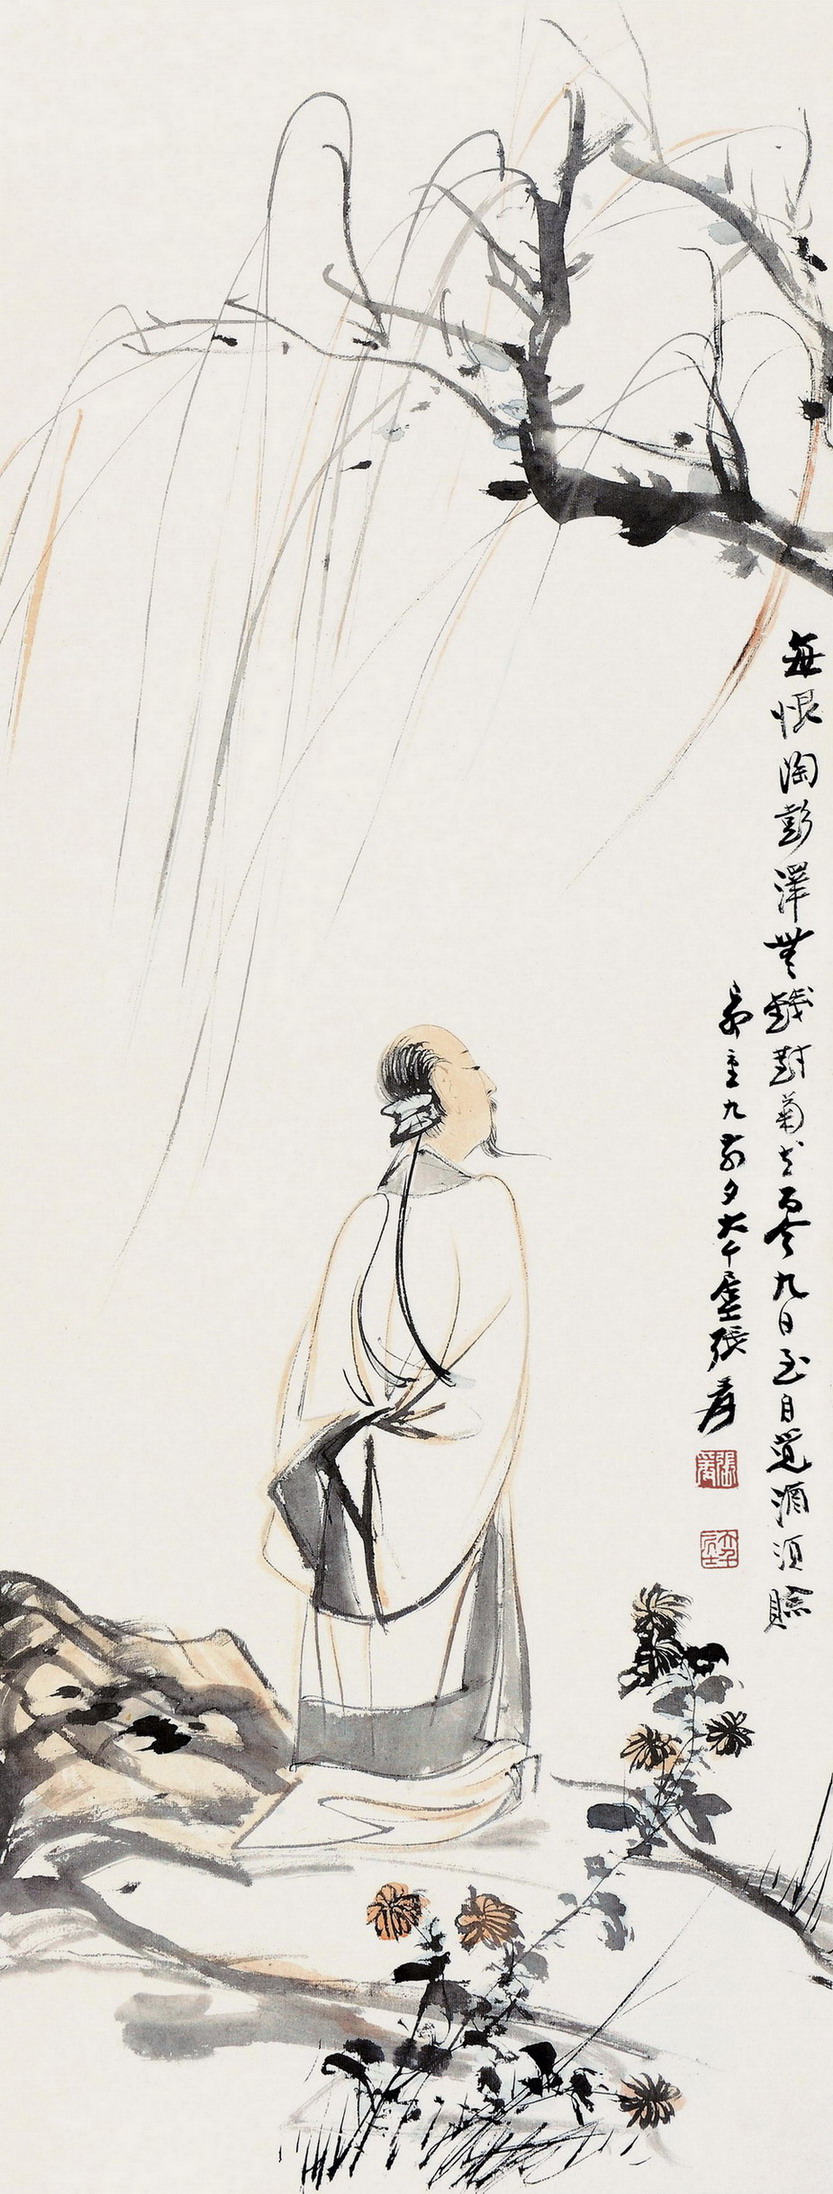 每恨陶彭澤無錢對菊花如今九日至自覺酒須賒
重九前夕大千居士張爰
張爰